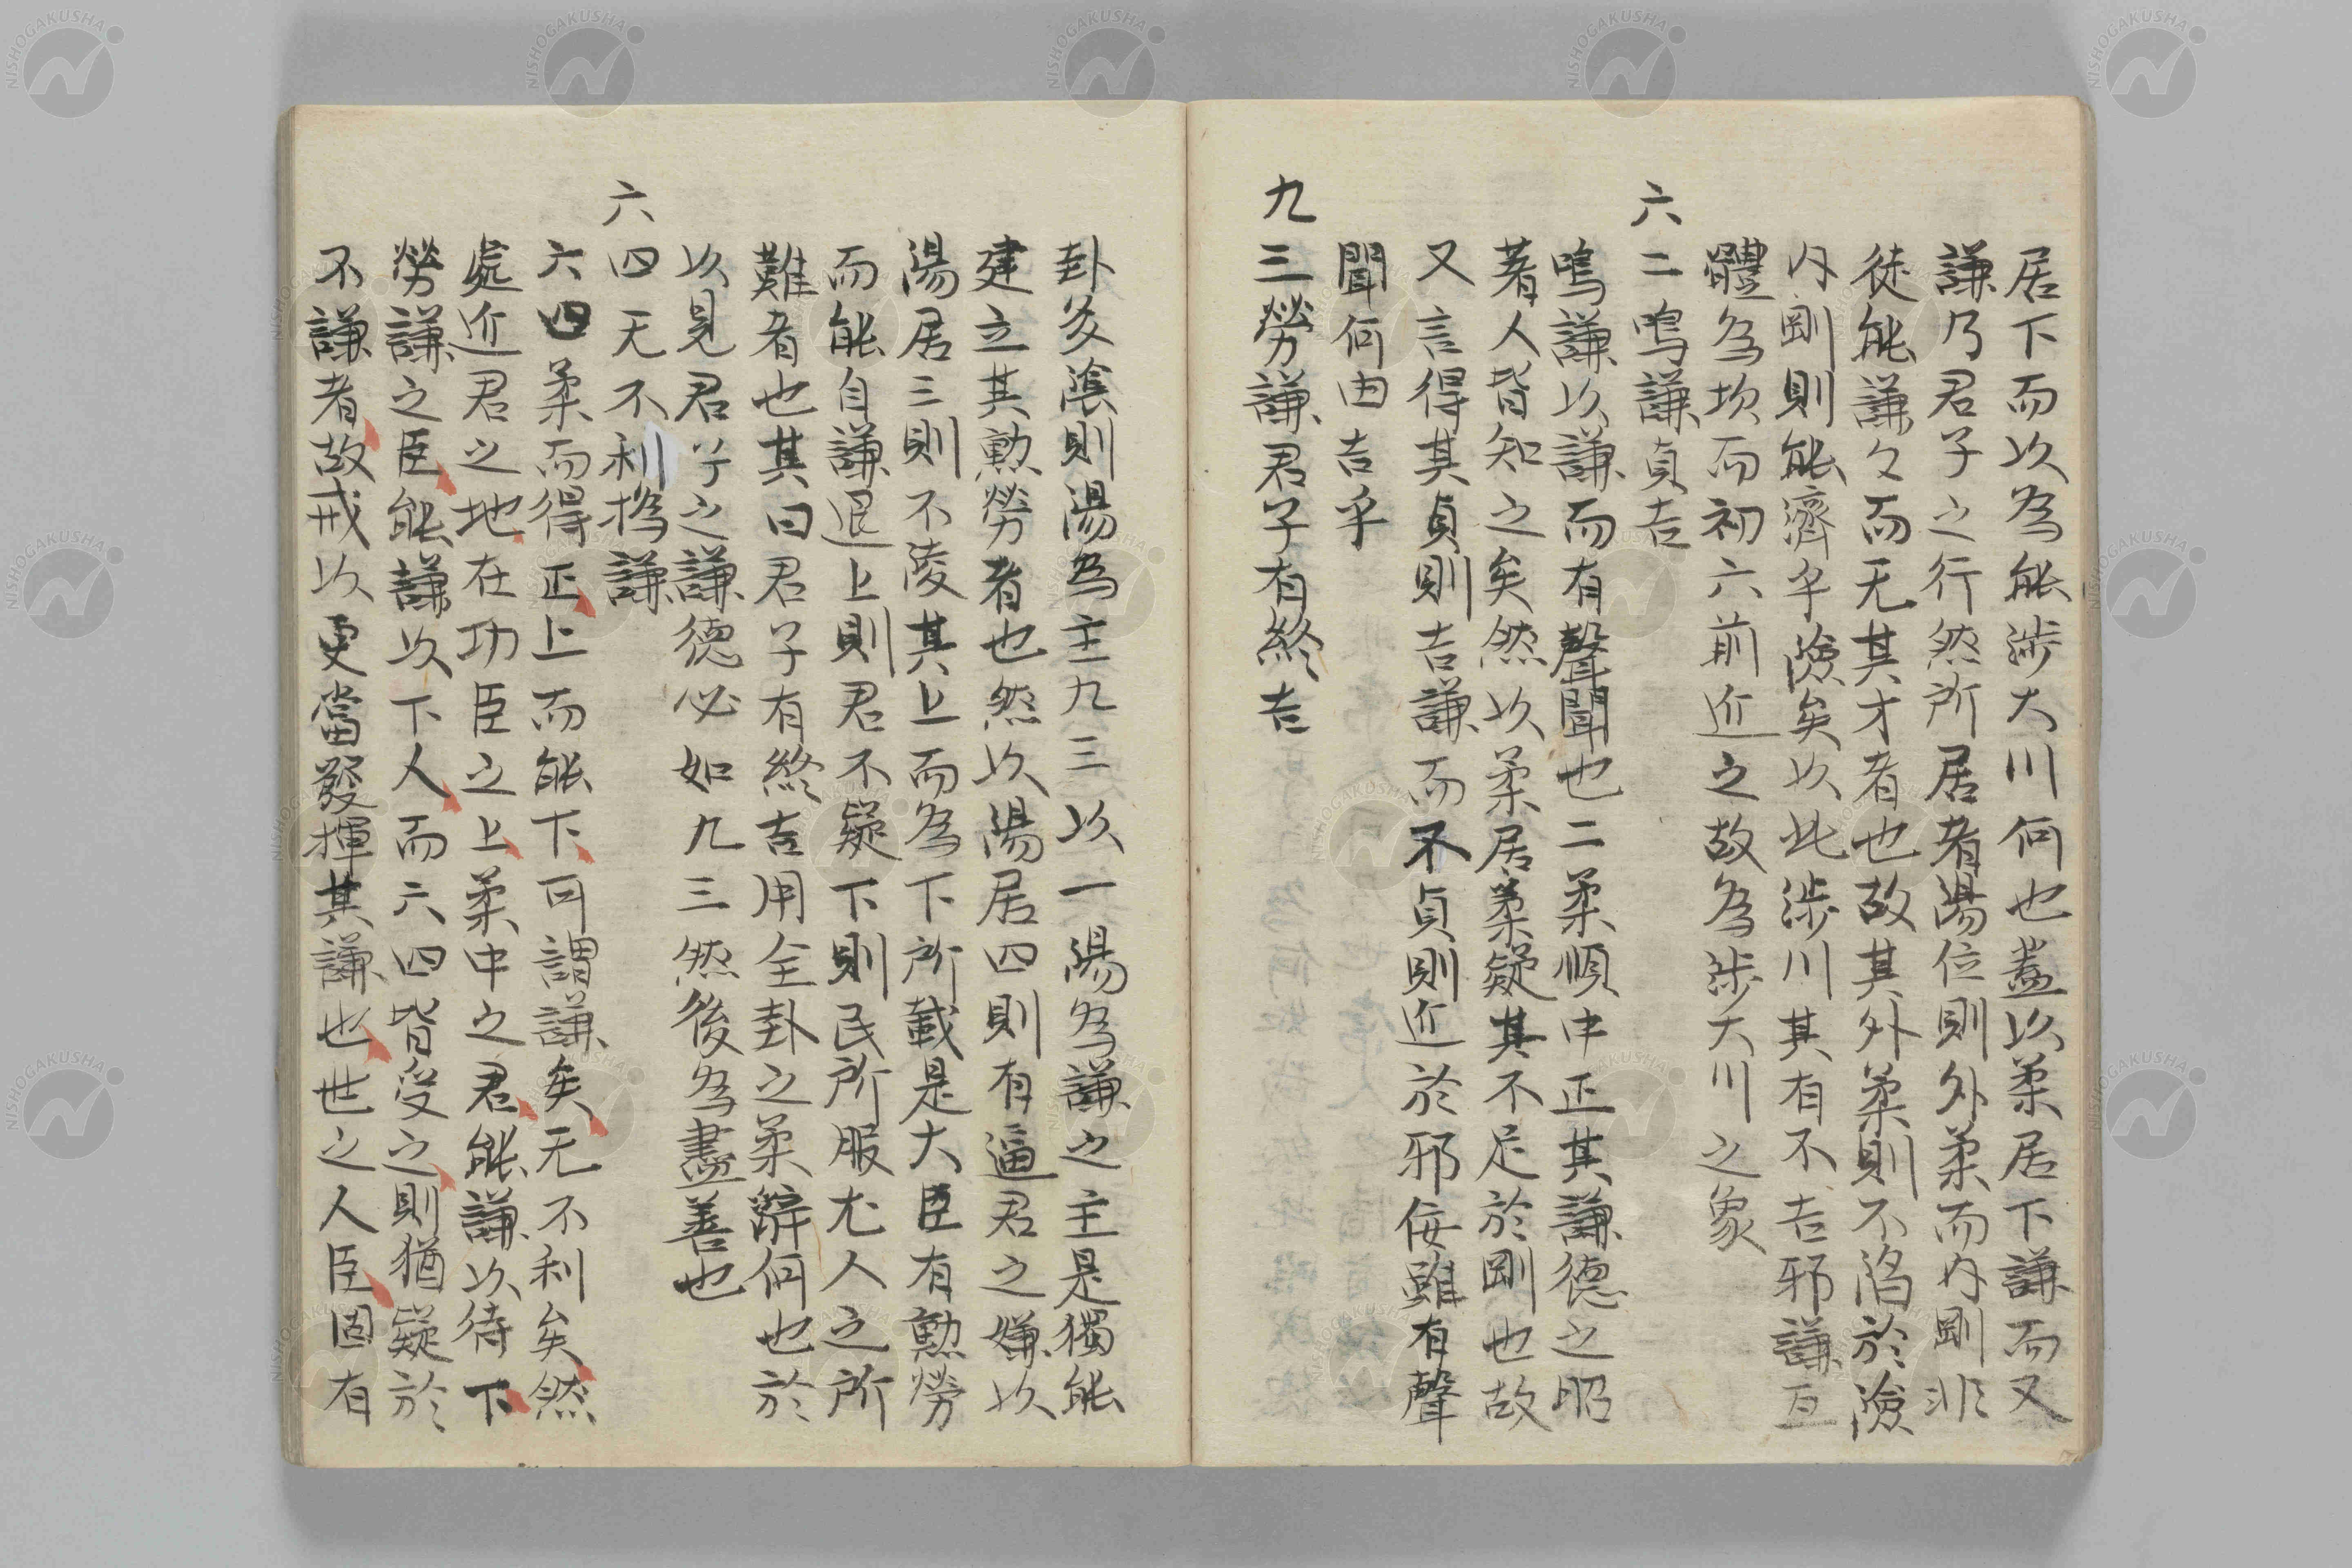 居下而以為能涉大川何也蓋以柔居下謙而又
謙乃君子之行然所居者陽位則外柔而内剛非
徒能謙々而无其才者也故其外柔則不陷於險
内剛則能濟乎險矣以此涉川其有不吉邪謙互
體為坎而初六前近之故為涉大川之象
六二鳴謙貞吉
鳴謙以謙而有聲聞也二柔順中正其謙德之昭
著人皆知之矣然以柔居柔疑其不足於剛也故
又言得其貞則吉謙而不貞則近於邪佞雖有聲
聞何由吉乎
九三勞謙君子有終吉
卦爻陰則陽為主九三以一陽為謙之主是獨能
建立其勲勞者也然以陽居四則有逼君之嫌以
陽居三則不陵其上而為下所載是大臣有勲勞
而能自謙退上則君不疑下則民所服尤人之所
難者也其曰君子有終吉用全卦之柔辭何也於
以見君子之謙德必如九三然後為盡善也
六四无不利撝謙
六四柔而得正上而能下可謂謙矣无不利矣然
處近君之地在功臣之上柔中之君能謙以待下
勞謙之臣能謙以下人而六四皆受之則猶疑於
不謙者故戒以更當發揮其謙也世之人臣固有
NISHOGAKUSHA